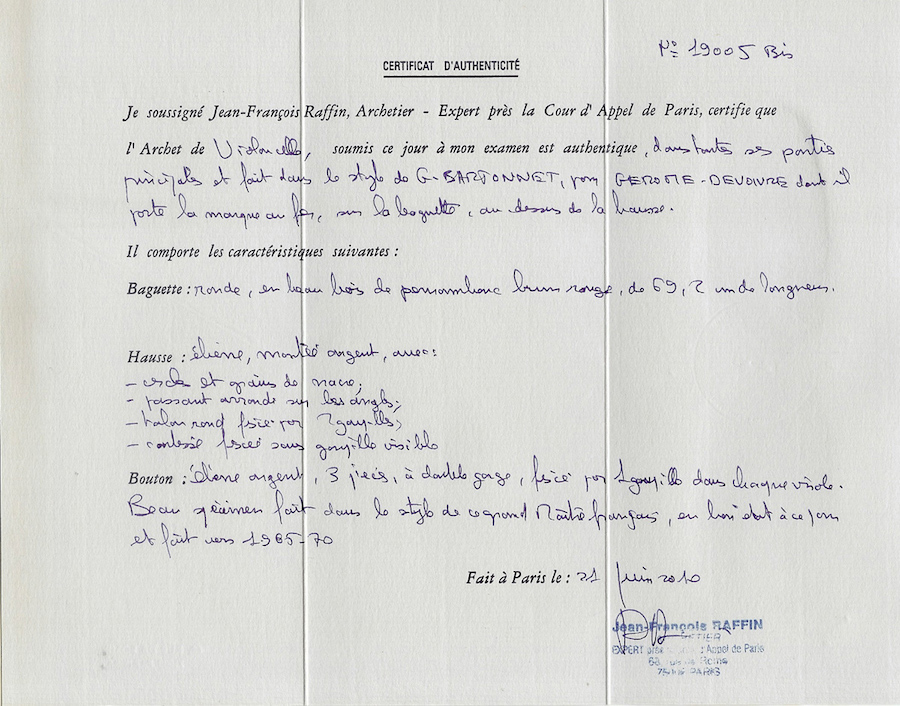 N° 19005 Bis
CERTIFICAT D'AUTHENTICITÉ
Je soussigné Jean-François Raffin, Archetier - Expert près la Cour d'Appel de Paris, certifie que
l'Archet de Violoncelle, soumis ce jour à mon examen est authentique, dans toutes ses parties
principales et fait dans le style de G. BARTONNET, pour GEROME-DEVOIVRE dont il
porte la marque au fer, sur la baguette, au-dessus de la hausse.
Il comporte les caractéristiques suivantes :
Baguette : ronde, en beau bois de pernambouc brun rouge, de 69,2 cm de longueur.
Hausse : ébène, montée argent, avec :
- et grains de nacre;
- passant arrondi sur les angles;
- talon rond fixé par 2 goupilles;
- coulisse fixée sans goupille visible
Bouton : ébène argent, 3 pièces, à double gorge, fixée par 1 goupille dans chaque virole.
Beau spécimen fait dans le style de ce grand Maître français, en bon état à ce jour
et fait vers 1965-70
Fait à Paris le : 21 Juin 2010
Jean-François RAFFIN
EXPERT Appel de Paris
Rome
PARIS